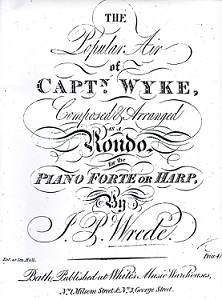 THE
Popular Air
of
CAPTN. WYKE,
Composed & Arranged
as a
Rondo,
for the
PIANO FORTE OR HARP,
By
J. P. Wrede.
Ent. at Sta. Hall.
Bath, Published at White's Music Warehouses,
No. 1, Milsom Street & No. 3, George Street.